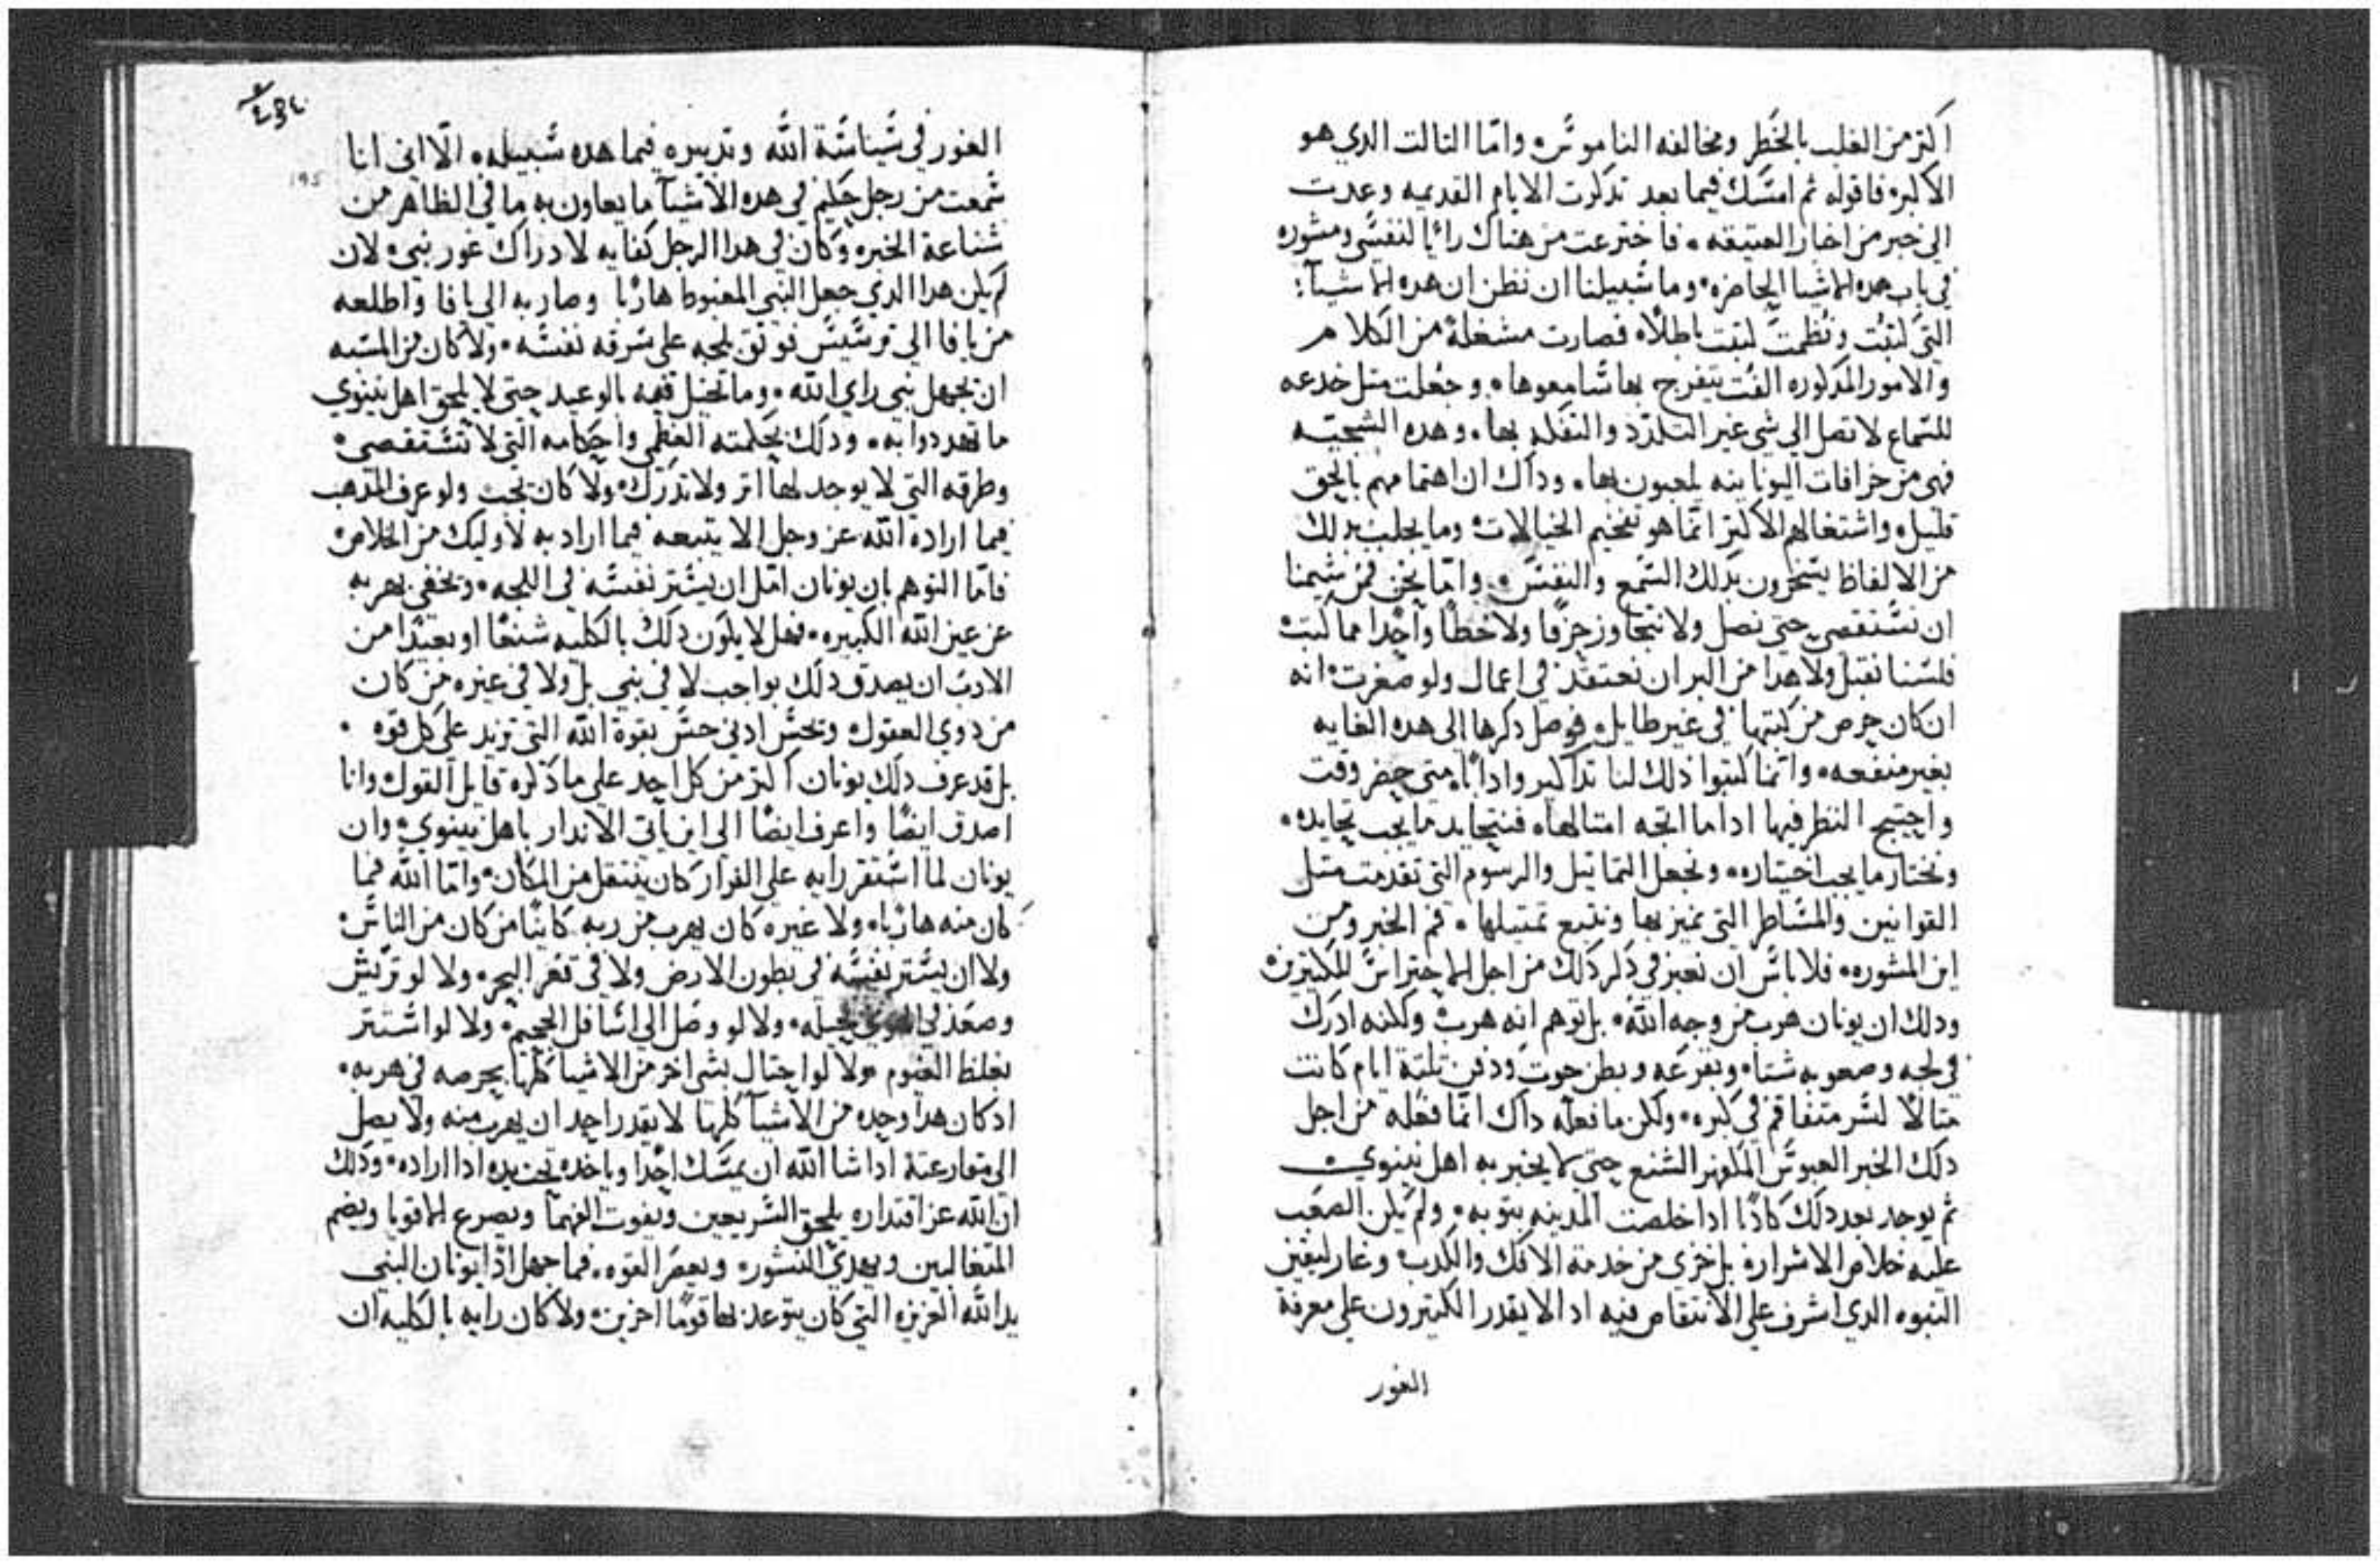 اكتر من الغلب بالخطر ومخالفه الناموس وامّا التالت الدي هو
الاكبر فاقوله ثم امسّك فيما بعد تدكرت الايام القديمه وعدت
الي خبر من اخبار العتيقه فاخترعت من هناك رائا لنفسي ومشوره
في باب هده الاشيا الحاضره وما سبيلنا ان نظن ان هده الاشيآ
التي كتبت ونظمت كتبت باطلاً فصارت مشغلة من الكلام
والامور المدكوره الفت يتفرج بها سامعوها وجعلت متل خدعه
للسّماع لا تصل الي شي غير التلدّد والتفكه بها وهده السجيه
فهي من خرافات اليونانيه يلعبون بها وداك ان اهتمامهم بالحق
قليل واشتغالهم الاكتر انّما هو تفخيم الخيالات وما يجلب بدلك
من الالفاظ يسحرون بدلك السّمع والنفس وامّا نحن فمن شيمنا
ان نستقصي حتي نصل ولا نتجاوز حرفًا ولا خطًا واحدًا مما كتب
فلسنا نقبل ولا هدا من البر ان نعتقد في اعمال ولو صغرت انه
ان كان حرص من كتبها في غير طايل فوصل دكرها الي هده الغايه
بغير منفعه وانّما كتبوا ذلك لنا تداكير وادابًا متي حضر وقت
واحتيج النظر فيها اداما اتجه امتالها فنتحايد ما يجب تحايده
ونختار ما يجب اختياره ونجعل التماتيل والرسوم التي تقدمت متل
القوانين والمسّاطر التي نميز بها ونتبع تمتيلها فم الخبر ومن
اين المشوره فلا باس ان نعبر في دكر دلك من اجل الاحتراس للكتيرين
ودلك ان يونان هرب من وجه الله بل توهم انه هرب ولكنه ادرك
في لجه وصعوبه شتا وبقرعه وبطن حوت ودفن تلتة ايام كانت
متالاً لسّر متفاقم في كبره ولكن ما فعله داك انّما فعله من اجل
دلك الخبر العبوس المكفهر الشنع حتي لا يخبر به اهل نينوي
ثم يوجد بعد دلك كادبًا ادا خلصت المدينه بتوبه ولم يكن الصعب
عليه خلاص الاشرار بل خزي من خدمة الافك والكدب وغار
النبوه الدي اشرف علي الانتقاص فيه اد الا يقدر الكتيرون علي معرفة
الغور
الغور في سياسة الله وتدبيره فيما هده سبيله الّا اني انا
سمعت من رجل حكيم في هده الاشيآ ما يعاون به ما في الظاهر من
شناعة الخبر وكان في هدا الرجل كفايه لادراك غور نبي لان
لم يكن هدا الدي جعل النبي المغبوط هاربًا وصار به الي يافا واطلعه
من يافا الي ترسيس فوتق بلجه علي سرقه نفسه ولا كان من المسّبه
ان يجهل نبي راي الله وما تحيل فيه بالوعيد حتي لا يلحق اهل نينوي
ما تهددوا به ودلك بحكمته العظمي واحكامه التي لا تستقصي
وطرقه التي لا يوجد لها اتر ولا تدرك ولا كان يجب ولو عرف المدهب
فيما اراده الله عز وجل الا يتبعه فيما اراد به لاوليك من الخلاص
فامّا التوهم بان يونان امّل ان يستر نفسه في اللجه ويخفي بهربه
عن عين الله الكبيره فهل لا يكون دلك بالكليه شنعًا او بعيدًا من
الادب ان يصدق دلك بواجب لا في نبي بل ولا في غيره من كان
من دوي العقول ويحسّ ادني حسّ بقوة الله التي تزيد علي كل قوه
بل قد عرف دلك يونان اكتر من كل احد علي ما دكره قايل القول وانا
اصدق ايضًا واعرف ايضًا الي اين ياتي الاندار باهل نينوي وان
يونان لما استقر رايه علي الفرار كان ينتقل من المكان وامّا الله فما
كان منه هاربًا ولا غيره كان يهرب من ربه كاينًا من كان من الناس
ولا ان يستر نفسه في بطون الارض ولا في قعر البحر ولا لو تريّش
وصعد في الهوي بحيله ولا لو وصل الي اسافل الجحيم ولا لو استتر
بغلظ الغيوم ولا لو احتال بشي اخر من الاشيا كلّها بحرصه في هربه
اد كان هدا وحده من الاشيآ كلّها لا يقدر احد ان يهرب منه ولا يصل
الي مقارعتة ادا شا الله ان يمسّك احدًا وياخده تحت يده ادا اراده ودلك
ان الله عز اقتداره يلحق السّريعين ويفوت الفهما ويصرع الاقويا ويضم
المتعاليين ويهدي النشوره ويعصر القوه فما جهل ادًا يونان النبي
يد الله العزيزه التي كان يتوعد بها قومًا اخرين ولا كان رايه بالكليه ان